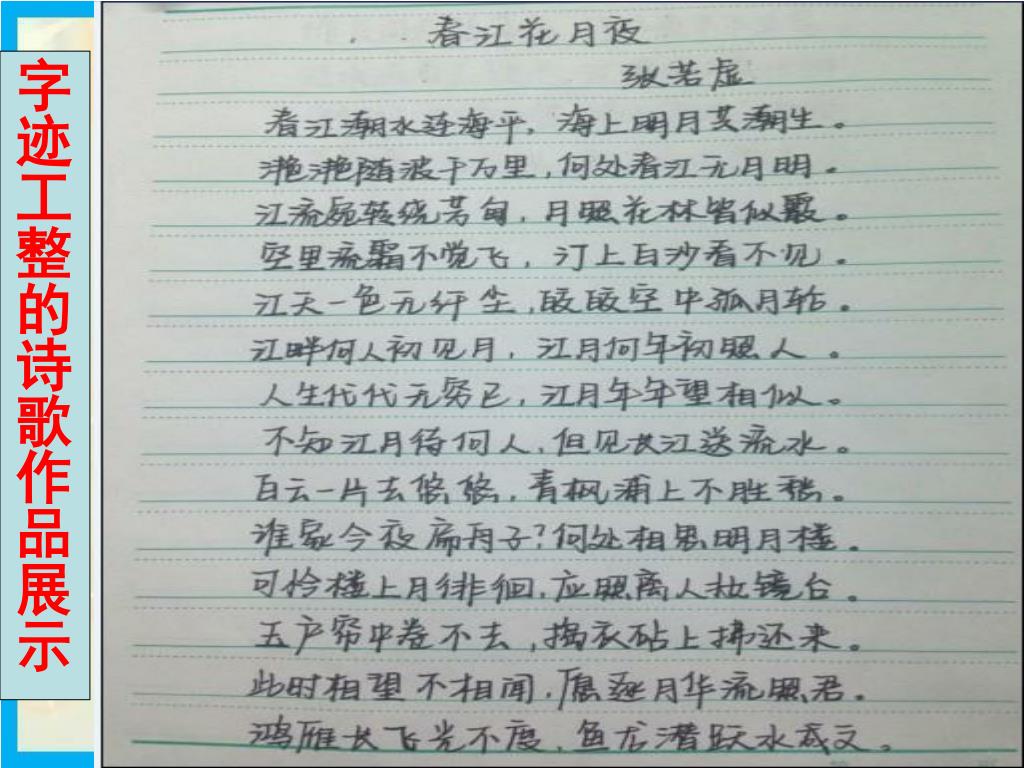 字迹工整的诗歌作品展示
春江花月夜
张若虚
春江潮水连海平，海上明月共潮生。
滟滟随波千万里，何处春江无月明。
江流宛转绕芳甸，月照花林皆似霰。
空里流霜不觉飞，汀上白沙看不见。
江天一色无纤尘，皎皎空中孤月轮。
江畔何人初见月，江月何年初照人。
人生代代无穷已，江月年年望相似。
不知江月待何人，但见长江送流水。
白云一片去悠悠，青枫浦上不胜愁。
谁家今夜扁舟子？何处相思明月楼。
可怜楼上月徘徊，应照离人妆镜台。
玉户帘中卷不去，捣衣砧上拂还来。
此时相望不相闻，愿逐月华流照君。
鸿雁长飞光不度，鱼龙潜跃水成文。